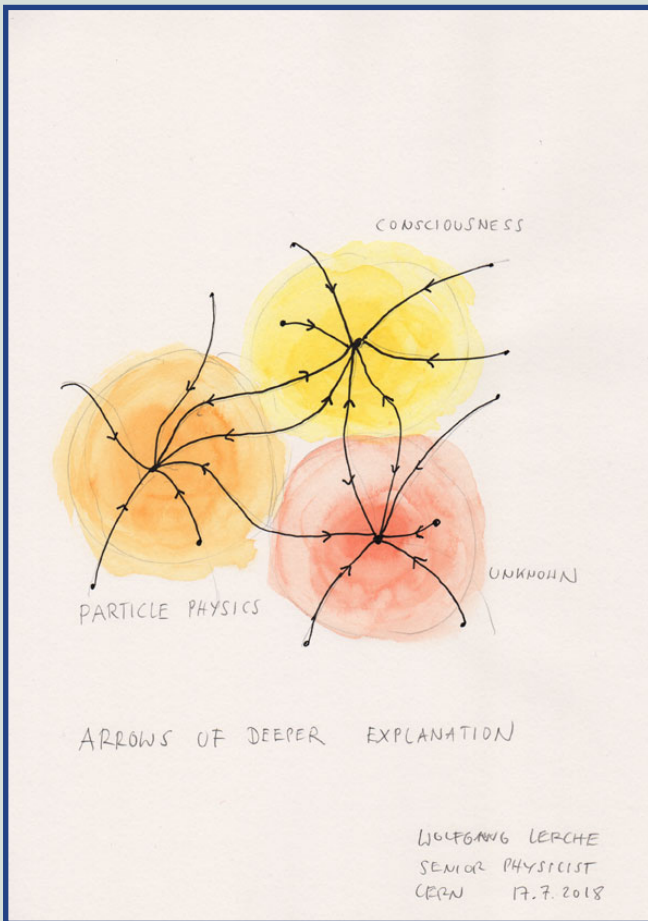 CONSCIOUSNESS
UNKNOWN
PARTICLE PHYSICS
ARROWS OF DEEPER EXPLANATION
WOLFGANG LERCHE
SENIOR PHYSICIST
CERN 17.7.2018